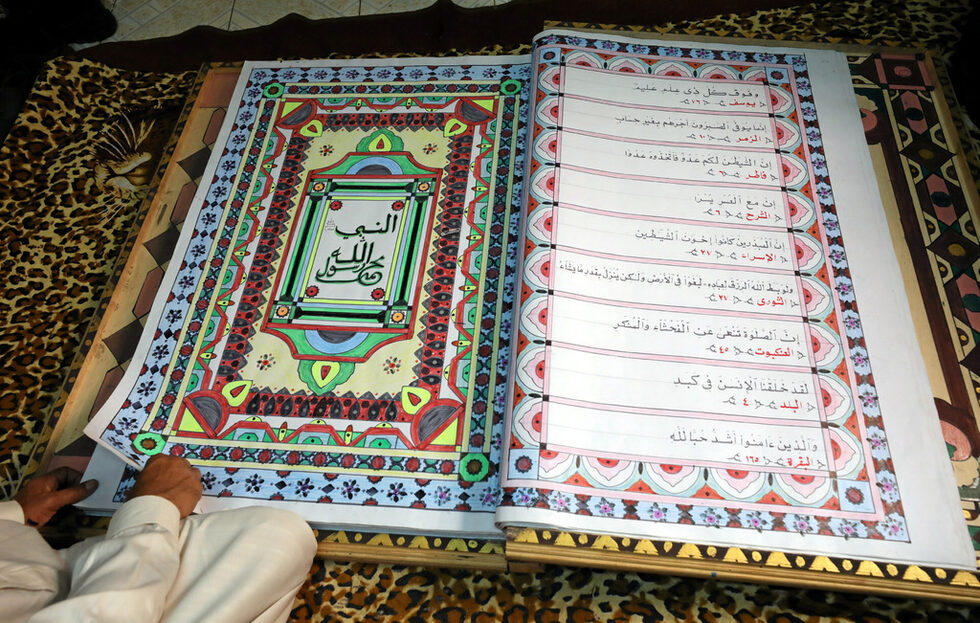 وفوق كل ذي علم عليم
يوسف
إنما يوفى الصبرون أجرهم بغير حساب
الزمر ١٠
إن الشيطن لكم عدو فاتخذوه عدوا
فاطر ٦
إن مع العسر يسرا
الشرح ٦
إن المبذرين كانوا إخون الشيطين
الإسراء ٢٧
ولو بسط الله الرزق لعباده لبغوا في الأرض ولكن ينزل بقدر ما يشاء
الشورى ٢٧
إن الصلوة تنهى عن الفحشاء والمنكر
العنكبوت ٤٥
لقد خلقنا الإنسن في كبد
البلد ٤
والذين ءامنوا أشد حبا لله
البقرة ١٦٥
النبي
محمد رسول الله